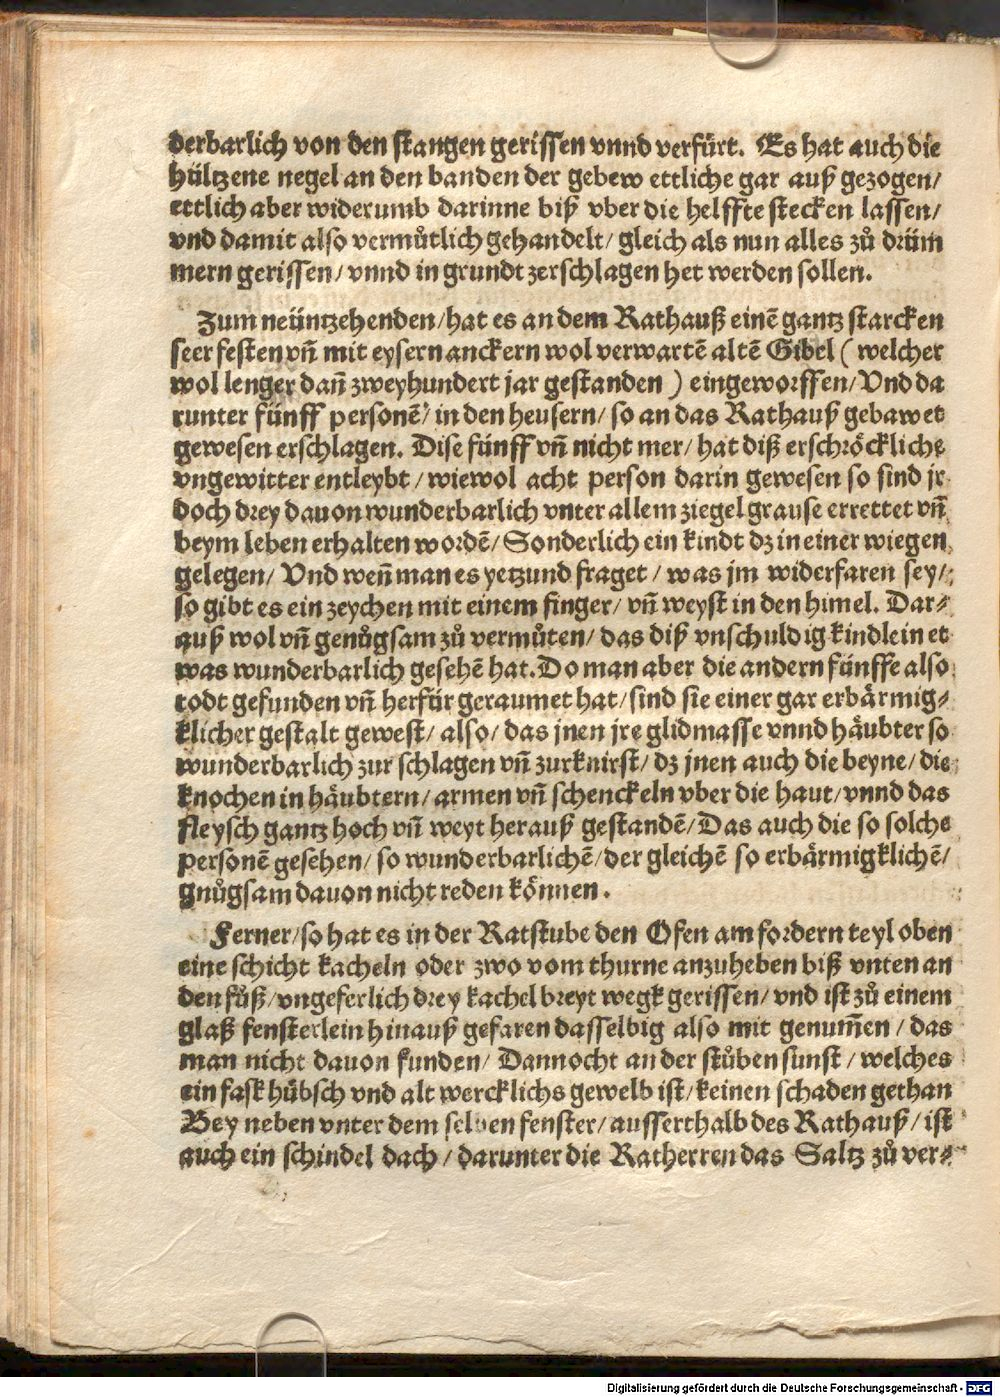 derbarlich von den stangen gerissen vnnd verfürt. Es hat auch die
hültzene negel an den banden der gebew ettliche gar auß gezogen/
ettlich aber widerumb darinne biß vber die helffte stecken lassen/
vnd damit also vermůtlich gehandelt/ gleich als nun alles zů drüm
mern gerissen/ vnnd in grundt zerschlagen het werden sollen.
Zum neüntzehenden/ hat es an dem Rathauß einē gantz starcken
seer festen vñ mit eysern anckern wol verwartē altē Gibel ( welcher
wol lenger dañ zweyhundert jar gestanden ) eingeworffen/ Vnd da
runter fünff personē/ in den heusern/ so an das Rathauß gebawet
gewesen erschlagen. Dise fünff vñ nicht mer/ hat diß erschröckliche
vngewitter entleybt/ wiewol acht person darin gewesen so sind jr
doch drey dauon wunderbarlich vnter allem ziegel grause errettet vñ
beym leben erhalten wordē/ Sonderlich ein kindt dz in einer wiegen
gelegen/ Vnd weñ man es yetzund fraget/ was jm widerfaren sey/
so gibt es ein zeychen mit einem finger/ vñ weyst in den himel. Dar⸗
auß wol vñ genůgsam zů vermůten/ das diß vnschuldig kindlein et
was wunderbarlich gesehē hat. Do man aber die andern fünffe also
todt gefunden vñ herfür geraumet hat/ sind sie einer gar erbärmig⸗
klicher gestalt gewest/ also/ das jnen jre glidmasse vnnd häubter so
wunderbarlich zur schlagen vñ zurknirst/ dz jnen auch die beyne/ die
knochen in häubtern/ armen vñ schenckeln vber die haut/ vnnd das
fleysch gantz hoch vñ weyt herauß gestandē/ Das auch die so solche
personē gesehen/ so wunderbarlichē/ der gleichē so erbärmigklichē/
gnůgsam dauon nicht reden können.
Ferner/ so hat es in der Ratstube den Ofen am fordern teyl oben
eine schicht kacheln oder zwo vom thurne anzuheben biß vnten an
den fůß/ vngeferlich drey kachel breyt wegk gerissen/ vnd ist zů einem
glaß fensterlein hinauß gefaren dasselbig also mit genum̄en/ das
man nicht dauon funden/ Dannocht an der stůben sunst/ welches
ein fast hübsch vnd alt wercklichs gewelb ist/ keinen schaden gethan
Bey neben vnter dem selben fenster/ aussserthalb des Rathauß/ ist
auch ein schindel dach/ darunter die Ratherren das Saltz zů ver⸗
Digitalisierung gefördert durch die Deutsche Forschungsgemeinschaft - DFG